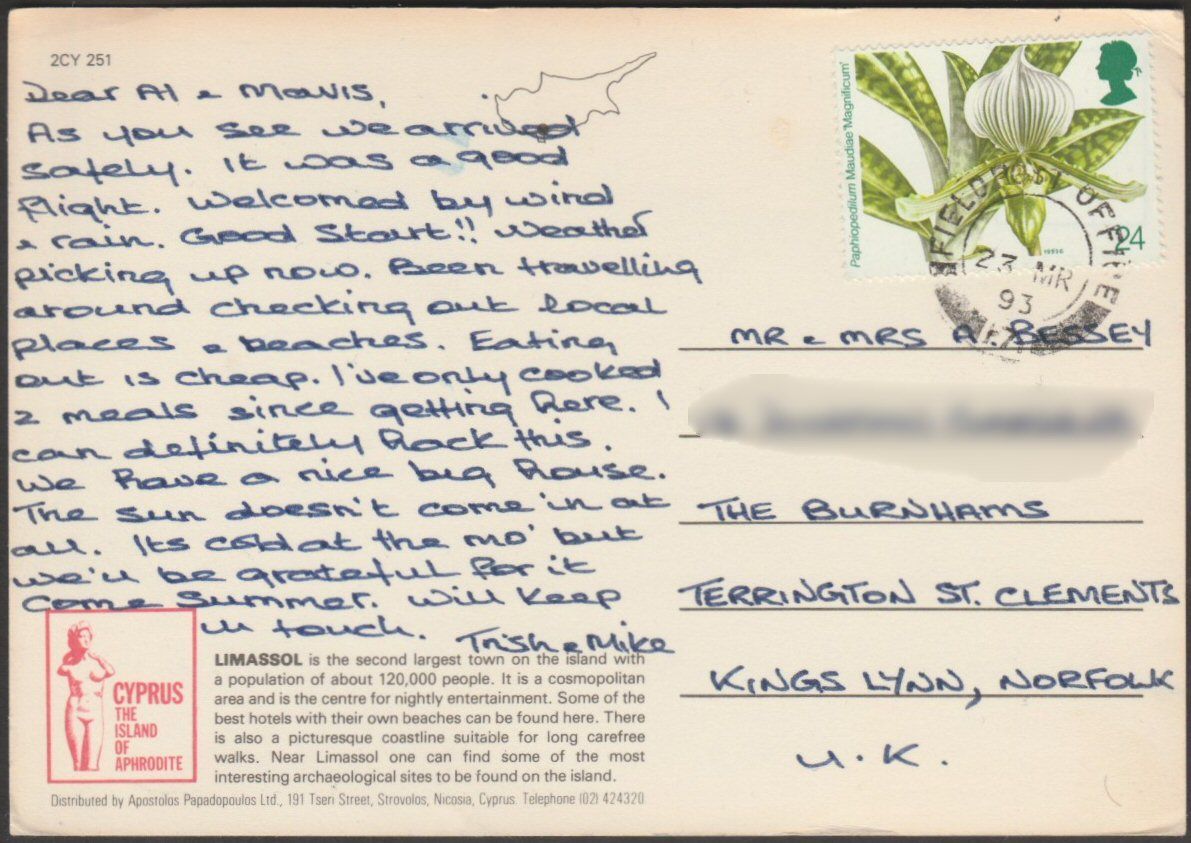 2CY 251
Dear Al & Mavis,
As you see we arrived
safely. It was a good
flight. Welcomed by wind
& rain. Good Start!! Weather
picking up now. Been travelling
around checking out local
places & beaches. Eating
out is cheap. I've only cooked
2 meals since getting here. I
can definitely hack this.
We have a nice big house.
The sun doesn't come in at
all. Its cold at the mo' but
we'll be grateful for it
come Summer. Will keep
in touch. Trish & Mike
CYPRUS
THE
ISLAND
OF
APHRODITE
LIMASSOL is the second largest town on the island with
a population of about 120,000 people. It is a cosmopolitan
area and is the centre for nightly entertainment. Some of the
best hotels with their own beaches can be found here. There
is also a picturesque coastline suitable for long carefree
walks. Near Limassol one can find some of the most
interesting archaeological sites to be found on the island.
Distributed by Apostolos Papadopoulos Ltd., 191 Tseri Street, Strovolos, Nicosia, Cyprus. Telephone (02) 424320
Paphiopedilum Maudiae 'Magnificum'
24
FIELD POST OFFICE
23 MR
93
MR & MRS A. BESSEY
THE BURNHAMS
TERRINGTON ST. CLEMENTS
KINGS LYNN, NORFOLK
U.K.